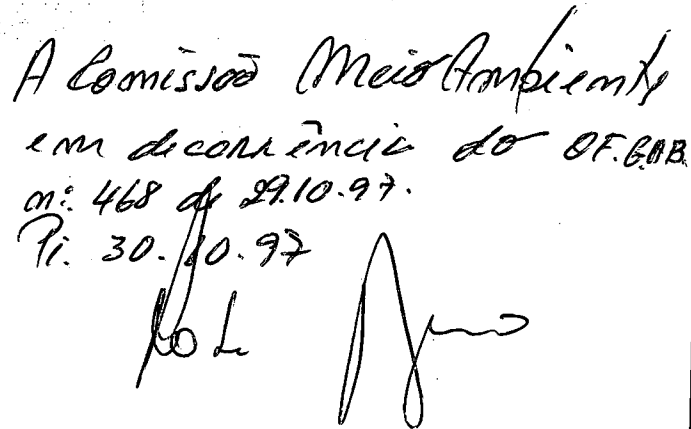 A Comissão Meio Ambiente
em decorrência do OF.GAB.
nº 468 de 29.10.97.
Pi. 30.10.97